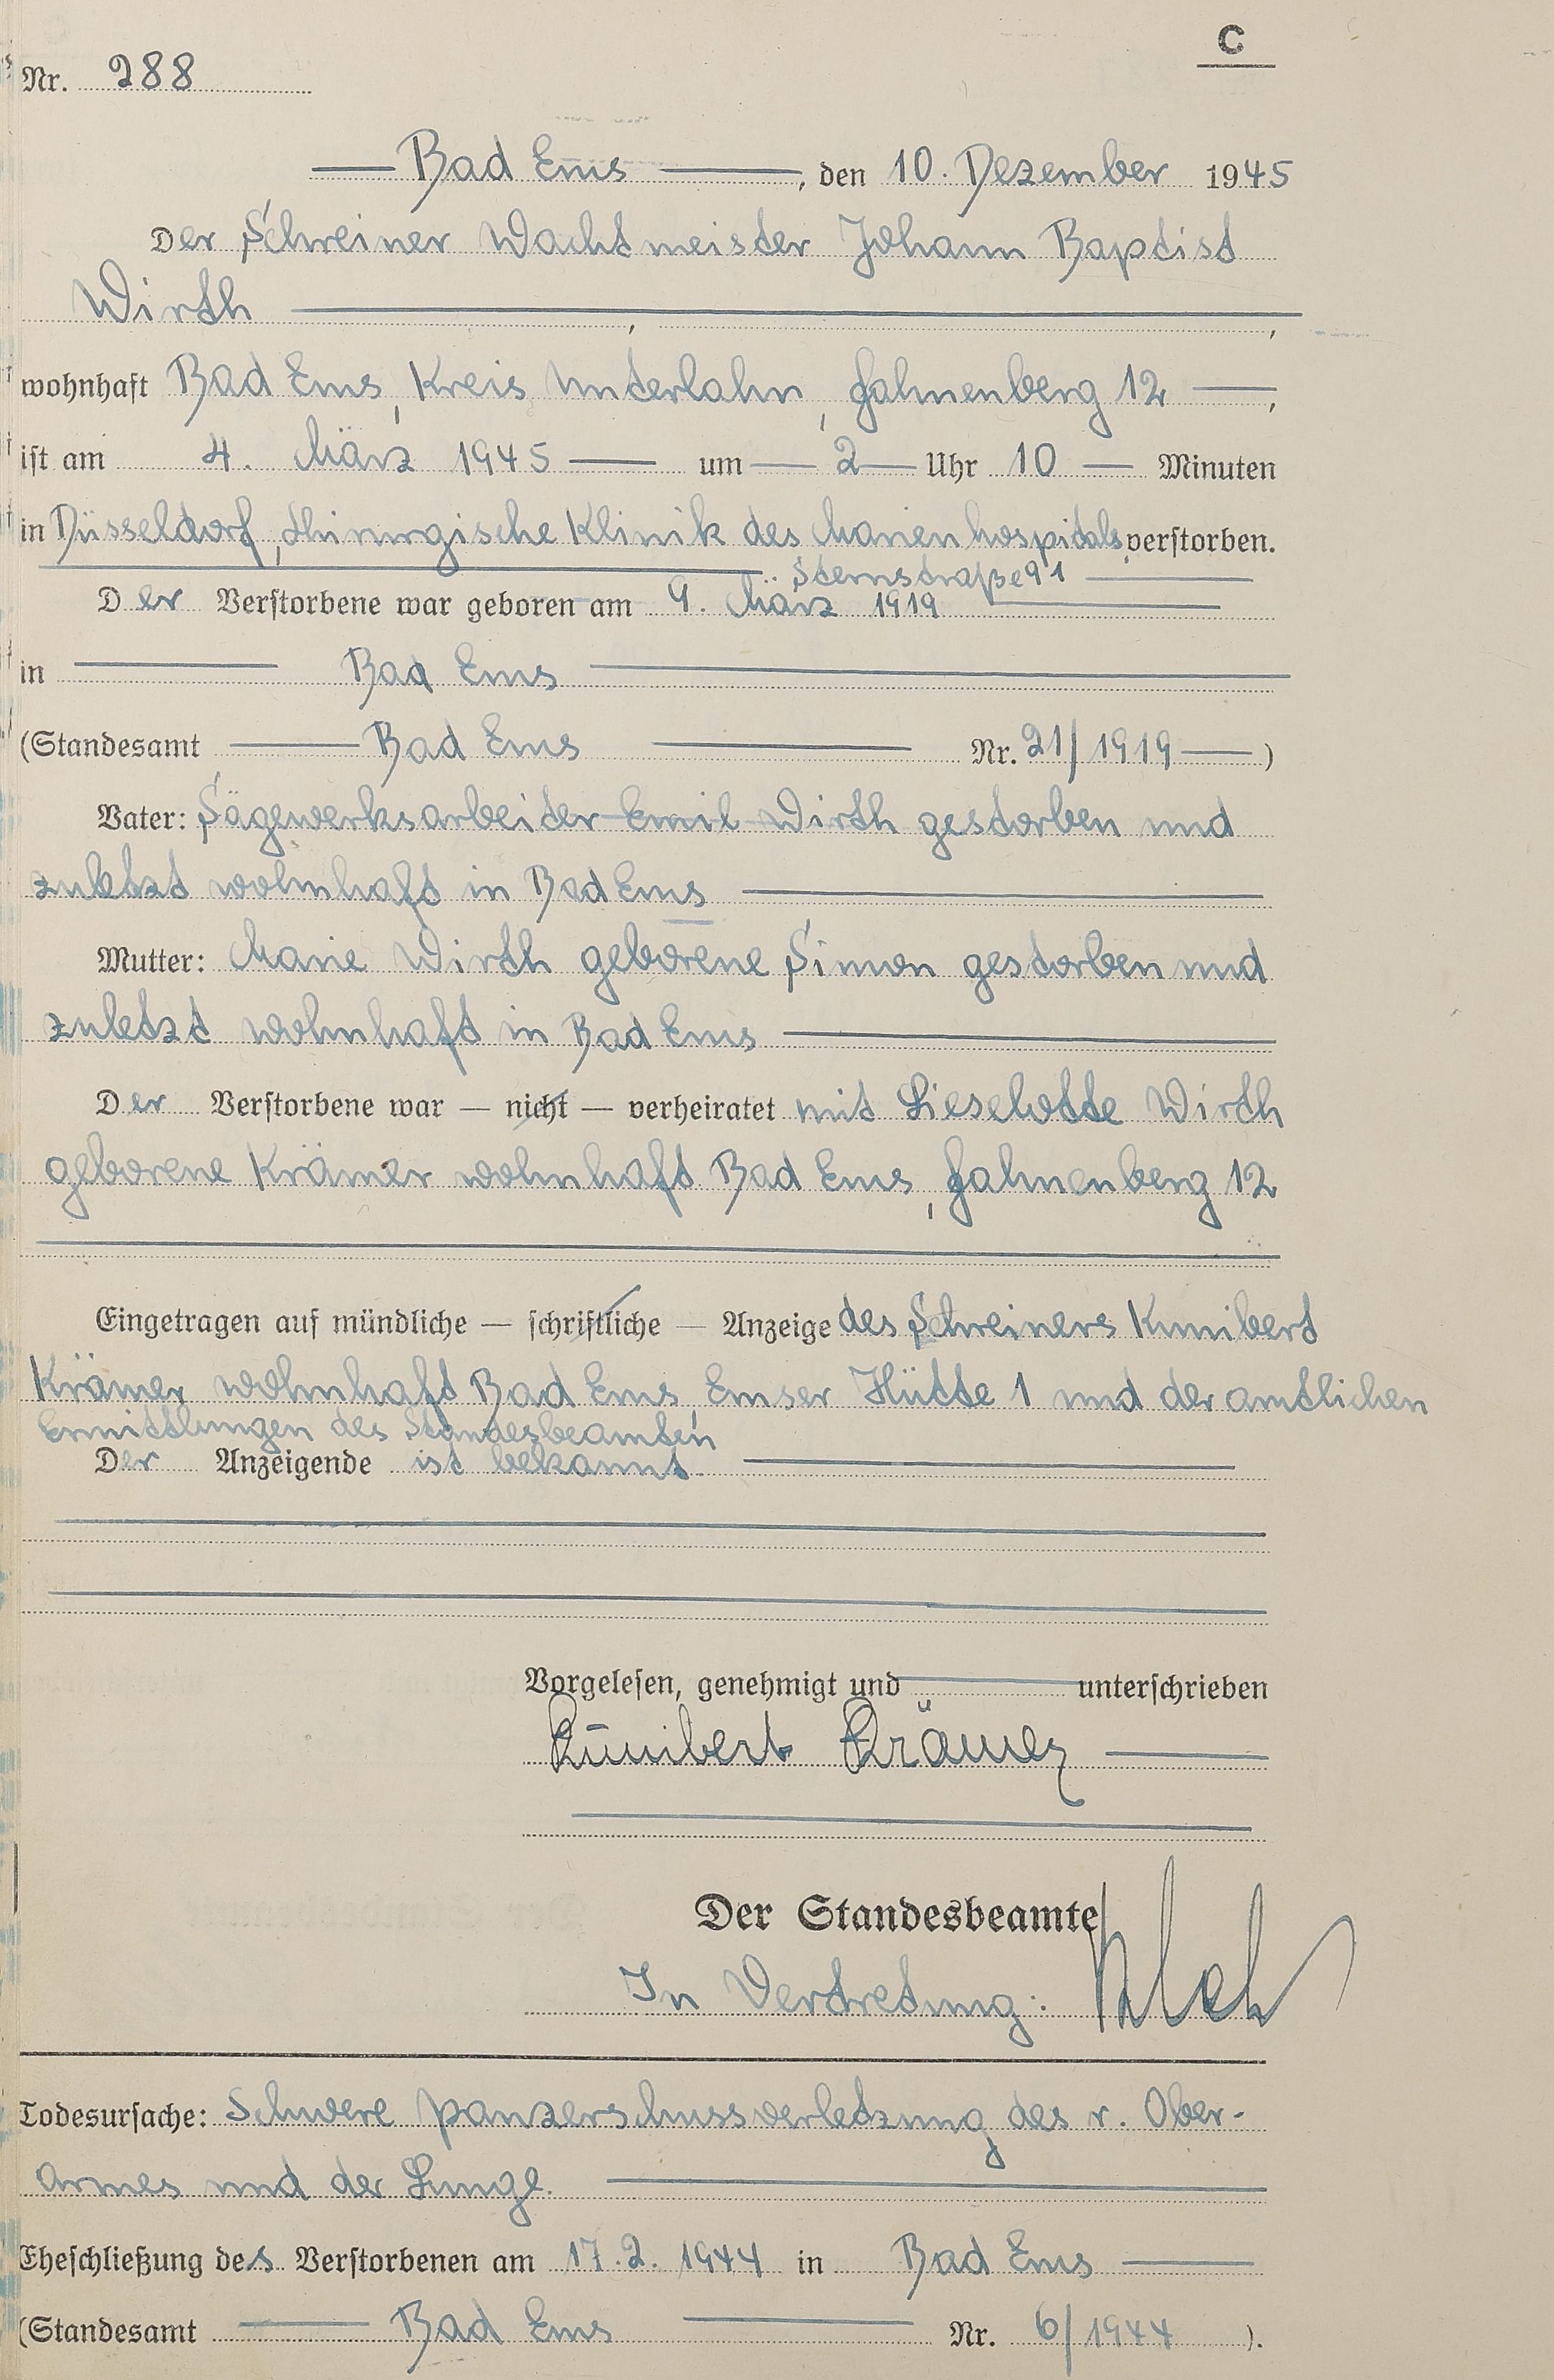 C
Nr. 288
Bad Ems, den 10. Dezember 1945
Der Schreiner Wachtmeister Johann Baptist
Wirth
wohnhaft Bad Ems, Kreis Unterlahn, Fahnenberg 12,
ist am 4. März 1945 um 2 Uhr 10 Minuten
in Düsseldorf, chirurgische Klinik des Marienhospitals verstorben.
Sternstraße 91
Der Verstorbene war geboren am 9. März 1919
in Bad Ems
(Standesamt Bad Ems Nr. 21/1919)
Vater: Sägewerksarbeiter Emil Wirth gestorben und
zuletzt wohnhaft in Bad Ems
Mutter: Marie Wirth geborene Simon gestorben und
zuletzt wohnhaft in Bad Ems
Der Verstorbene war — nicht — verheiratet mit Lieselotte Wirth
geborene Krämer wohnhaft Bad Ems, Fahnenberg 12
Eingetragen auf mündliche — schriftliche — Anzeige des Schreiners Kunibert
Krämer wohnhaft Bad Ems, Emser Hütte 1 und der amtlichen
Ermittlungen des Standesbeamten
Der Anzeigende ist bekannt.
Vorgelesen, genehmigt und unterschrieben
Kunibert Krämer
Der Standesbeamte
In Vertretung:
Todesursache: Schwere Panzerschussverletzung des r. Ober-
armes und der Lunge.
Eheschließung des Verstorbenen am 17.2.1944 in Bad Ems
(Standesamt Bad Ems Nr. 6/1944).